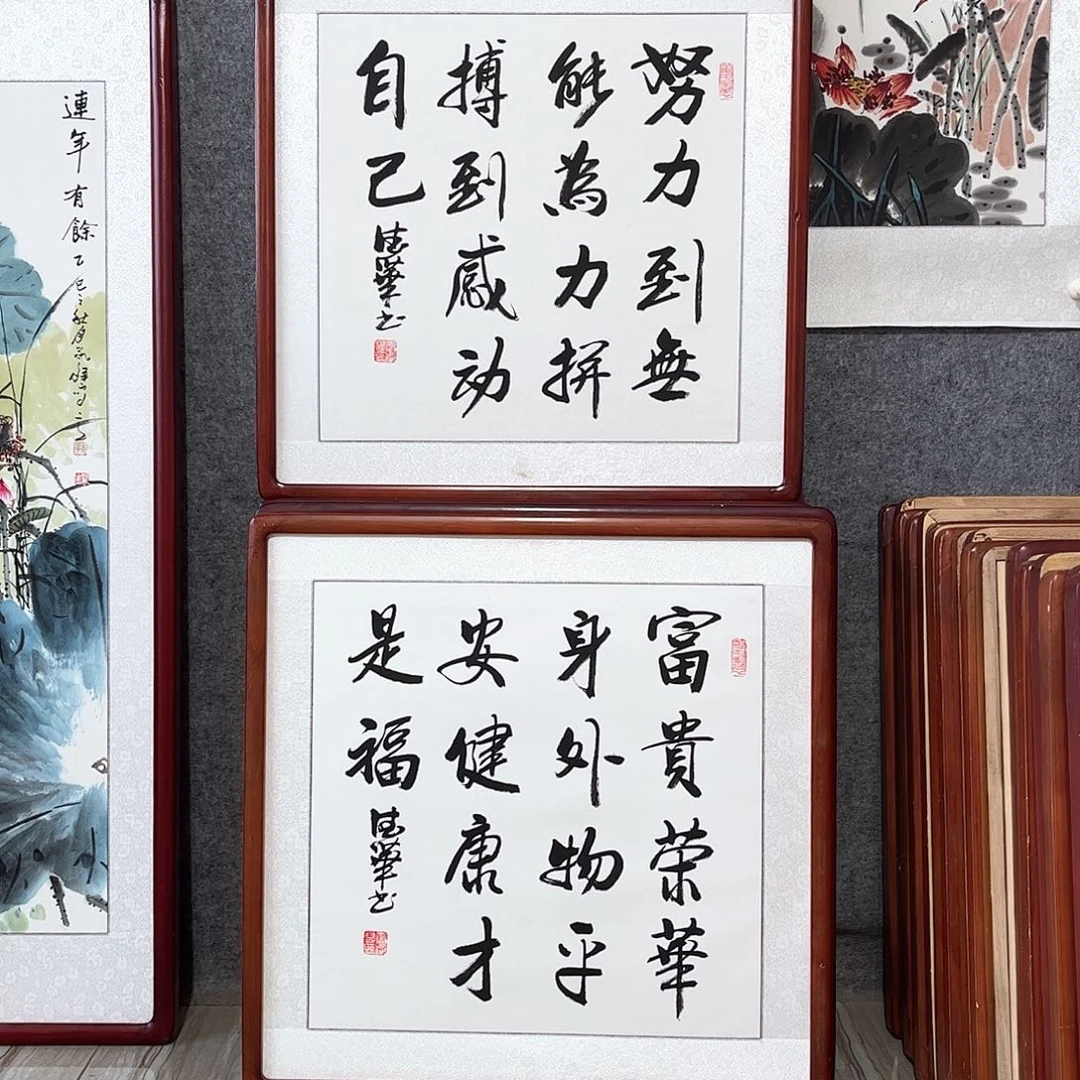 努力到無
能為力拼
搏到感动
自己
德華书
富貴荣華
身外物平
安健康才
是福
德華书
連年有餘
乙巳